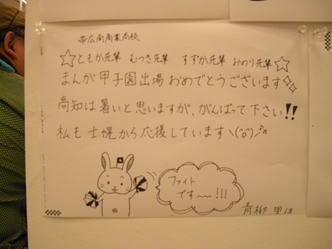 帯広南商業高校
☆ともか先輩 むつき先輩 すずか先輩 みのり先輩☆
まんが甲子園出場おめでとうございます
高知は暑いと思いますが、がんばって下さい!!
私も士幌から応援しています
ファイト
です〜!!!
青柳